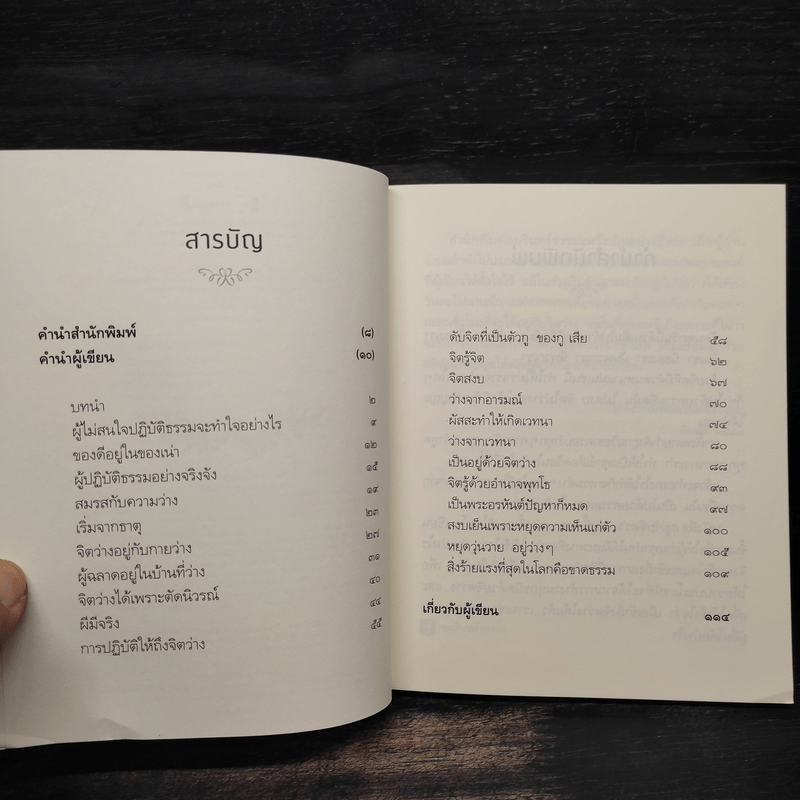 สารบัญ
คำนำสำนักพิมพ์ (๘)
คำนำผู้เขียน (๑๐)
บทนำ ๒
ผู้ไม่สนใจปฏิบัติธรรมจะทำใจอย่างไร ๙
ของดีอยู่ในของเน่า ๑๒
ผู้ปฏิบัติธรรมอย่างจริงจัง ๑๕
สมรสกับความว่าง ๑๙
เริ่มจากธาตุ ๒๓
จิตว่างอยู่กับกายว่าง ๒๗
ผู้ฉลาดอยู่ในบ้านที่ว่าง ๓๑
จิตว่างได้เพราะตัดนิวรณ์ ๔๐
ผีมีจริง ๔๔
การปฏิบัติให้ถึงจิตว่าง ๕๕
ดับจิตที่เป็นตัวกู ของกู เสีย ๕๘
จิตรู้จิต ๖๒
จิตสงบ ๖๗
ว่างจากอารมณ์ ๗๐
ผัสสะทำให้เกิดเวทนา ๗๔
ว่างจากเวทนา ๘๐
เป็นอยู่ด้วยจิตว่าง ๘๘
จิตรู้ด้วยอำนาจพุทโธ ๙๓
เป็นพระอรหันต์ปัญหาก็หมด ๙๗
สงบเย็นเพราะหยุดความเห็นแก่ตัว ๑๐๐
หยุดวุ่นวาย อยู่ว่างๆ ๑๐๕
สิ่งร้ายแรงที่สุดในโลกคือขาดธรรม ๑๐๙
เกี่ยวกับผู้เขียน ๑๑๔